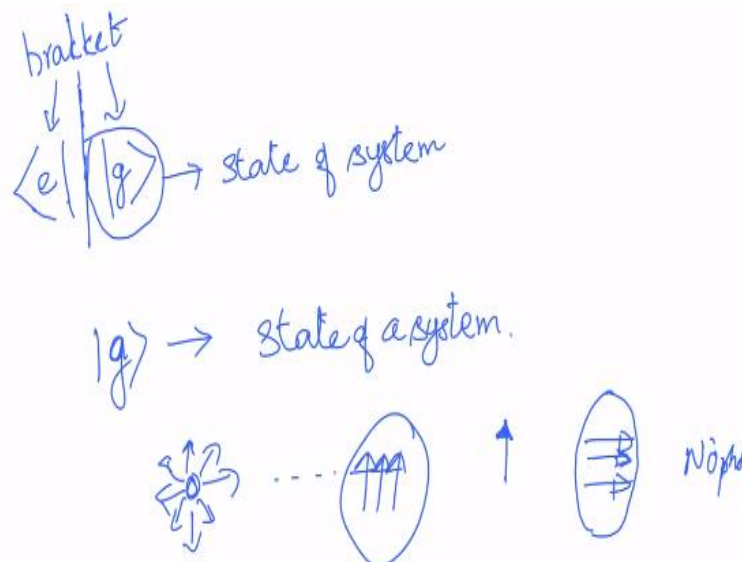 bracket
⟨e| |g⟩ → state of system
|g⟩ → state of a system.